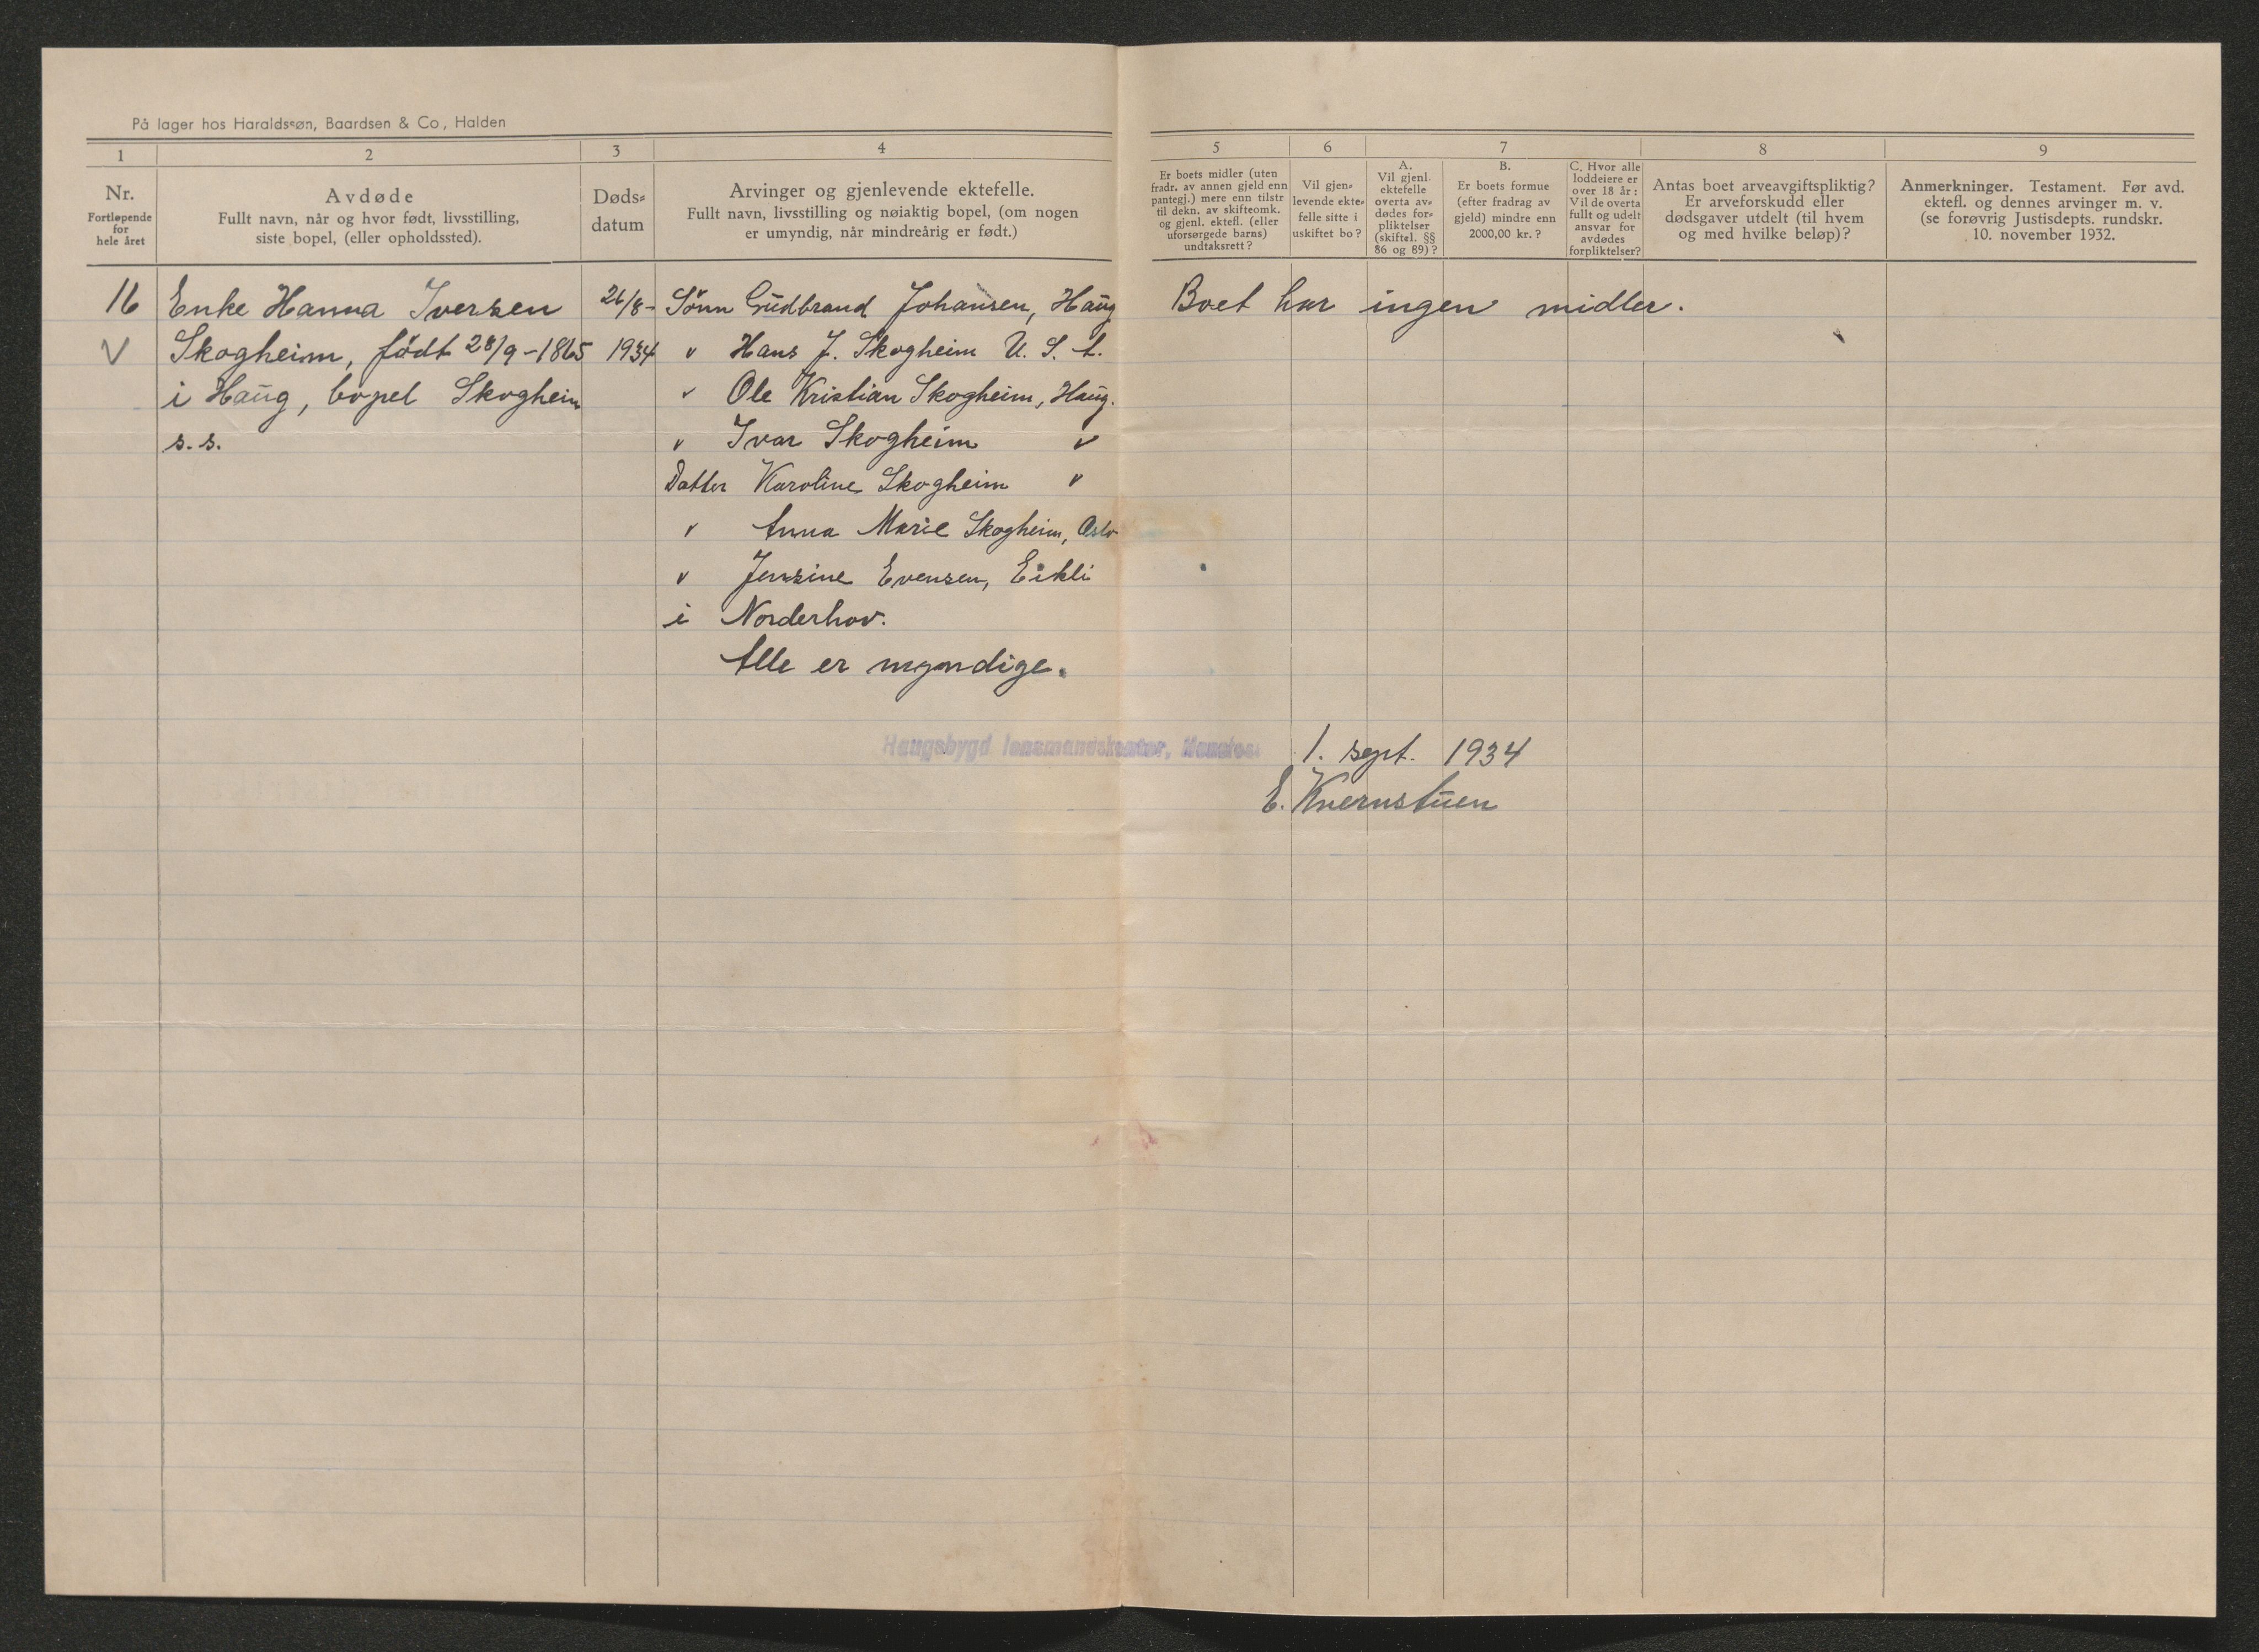 På lager hos Haraldssøn, Baardsen & Co., Halden
1
2
3
4
5
6
7
8
9
Nr.
Fortløpende
for
hele året
Avdøde
Fullt navn, når og hvor født, livsstilling,
siste bopel, (eller opholdssted).
Døds-
datum
Arvinger og gjenlevende ektefelle.
Fullt navn, livsstilling og nøiaktig bopel, (om nogen
er umyndig, når mindreårig er født.)
Er boets midler (uten
fradr. av annen gjeld enn
pantegj.) mere enn tilstr
til dekn. av skifteomk.
og gjenl. ektefl. (eller
uforsørgede barns)
undtaksrett?
Vil gjen-
levende ekte-
felle sitte i
uskiftet bo?
A.
Vil gjenl.
ektefelle
overta av-
dødes for-
pliktelser
(skiftel. §§
86 og 89)?
B.
Er boets formue
(efter fradrag av
gjeld) mindre enn
2000,00 kr.?
C. Hvor alle
loddeiere er
over 18 år:
Vil de overta
fullt og udelt
ansvar for
avdødes
forpliktelser?
Antas boet arveavgiftspliktig?
Er arveforskudd eller
dødsgaver utdelt (til hvem
og med hvilke beløp)?
Anmerkninger. Testament. Før avd.
ektefl. og dennes arvinger m. v.
(se forøvrig Justisdepts. rundskr.
10. november 1932.
16 Enke Hanna Iversen 26/8- Sønn Gudbrand Johansen, Haug Boet har ingen midler.
V Skogheim, født 28/9-1865 1934 " Hans J. Skogheim U. S. A.
i Haug, bopel Skogheim " Ole Kristian Skogheim, Haug.
s. s. " Ivar Skogheim "
Datter Karoline Skogheim "
" Anna Marie Skogheim, Oslo
" Jensine Evensen, Eikli
i Norderhov.
Alle er myndige.
Haugsbygd lensmandskontor, 1. sept. 1934
E. Kvernstuen